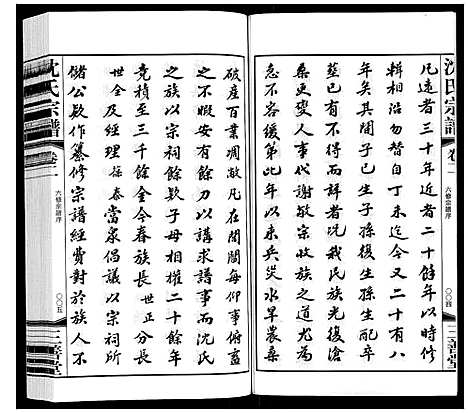 沈氏宗譜
卷二
六修宗譜序
〇〇四
三善堂
凡遠者三十年近者二十餘年以時修
輯相沿勿替自丁未迄今又二十有八
年矣其間子生孫復生孫生配卒
塟已有不得而詳者況我氏族光復滄
桑更變人事代謝敬宗收族之道尤為
急不容緩第此年以來兵災水旱農桑
破產百業凋敝凡在閭閻每使俯畜
之不暇安有餘力以講求譜事而沈氏
之族以宗祠餘款子母相權二十餘年
竟積至三千餘金今春族長世正分
世全及經理孫泰當泉倡議以宗祠所
儲公款作纂修宗譜經費對於族人不
沈氏宗譜
卷二
六修宗譜序
〇〇五
三善堂